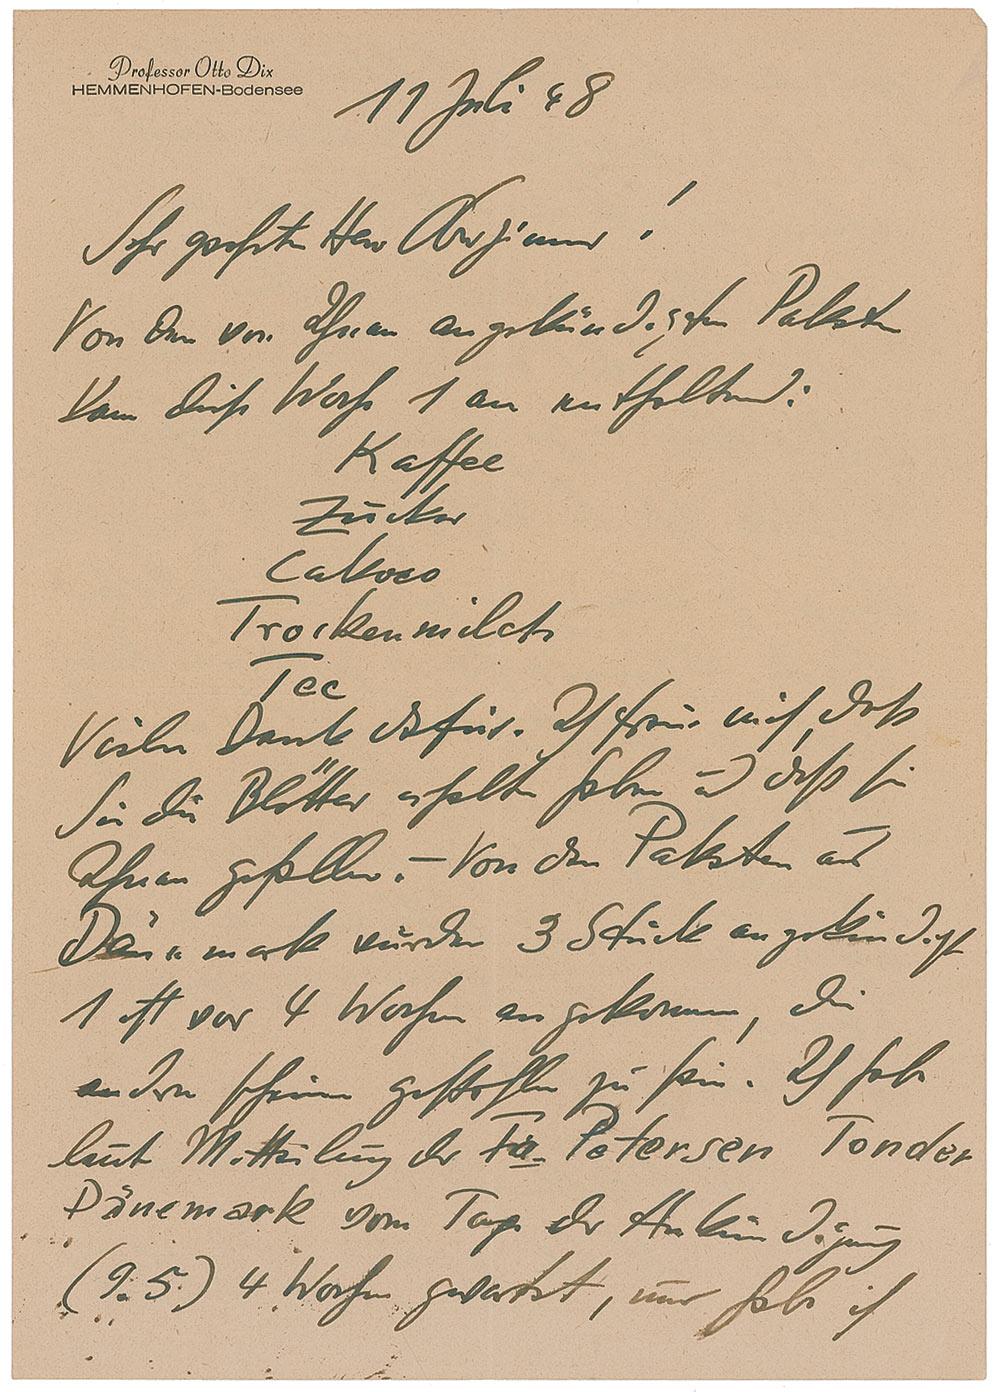 Professor Otto Dix
HEMMENHOFEN-Bodensee
11 Juli 48
Sehr geehrter Herr !
Von den von Ihnen angekündigten Paketen
kam diese Woche 1 an enthaltend:
Kaffee
Zucker
Cakoco
Trockenmilch
Tee
Vielen Dank dafür. Ich freue mich, daß
Sie die Blätter erhalten haben u daß sie
Ihnen gefallen. – Von den Paketen aus
Dänemark wurden 3 Stück angekündigt
1 ist vor 4 Wochen angekommen, die
andern scheinen gestohlen zu sein. Ich habe
laut Mitteilung der Fa. Petersen Tonder
Dänemark vom Tage der Ankündigung
(9.5.) 4 Wochen gewartet, nun habe ich